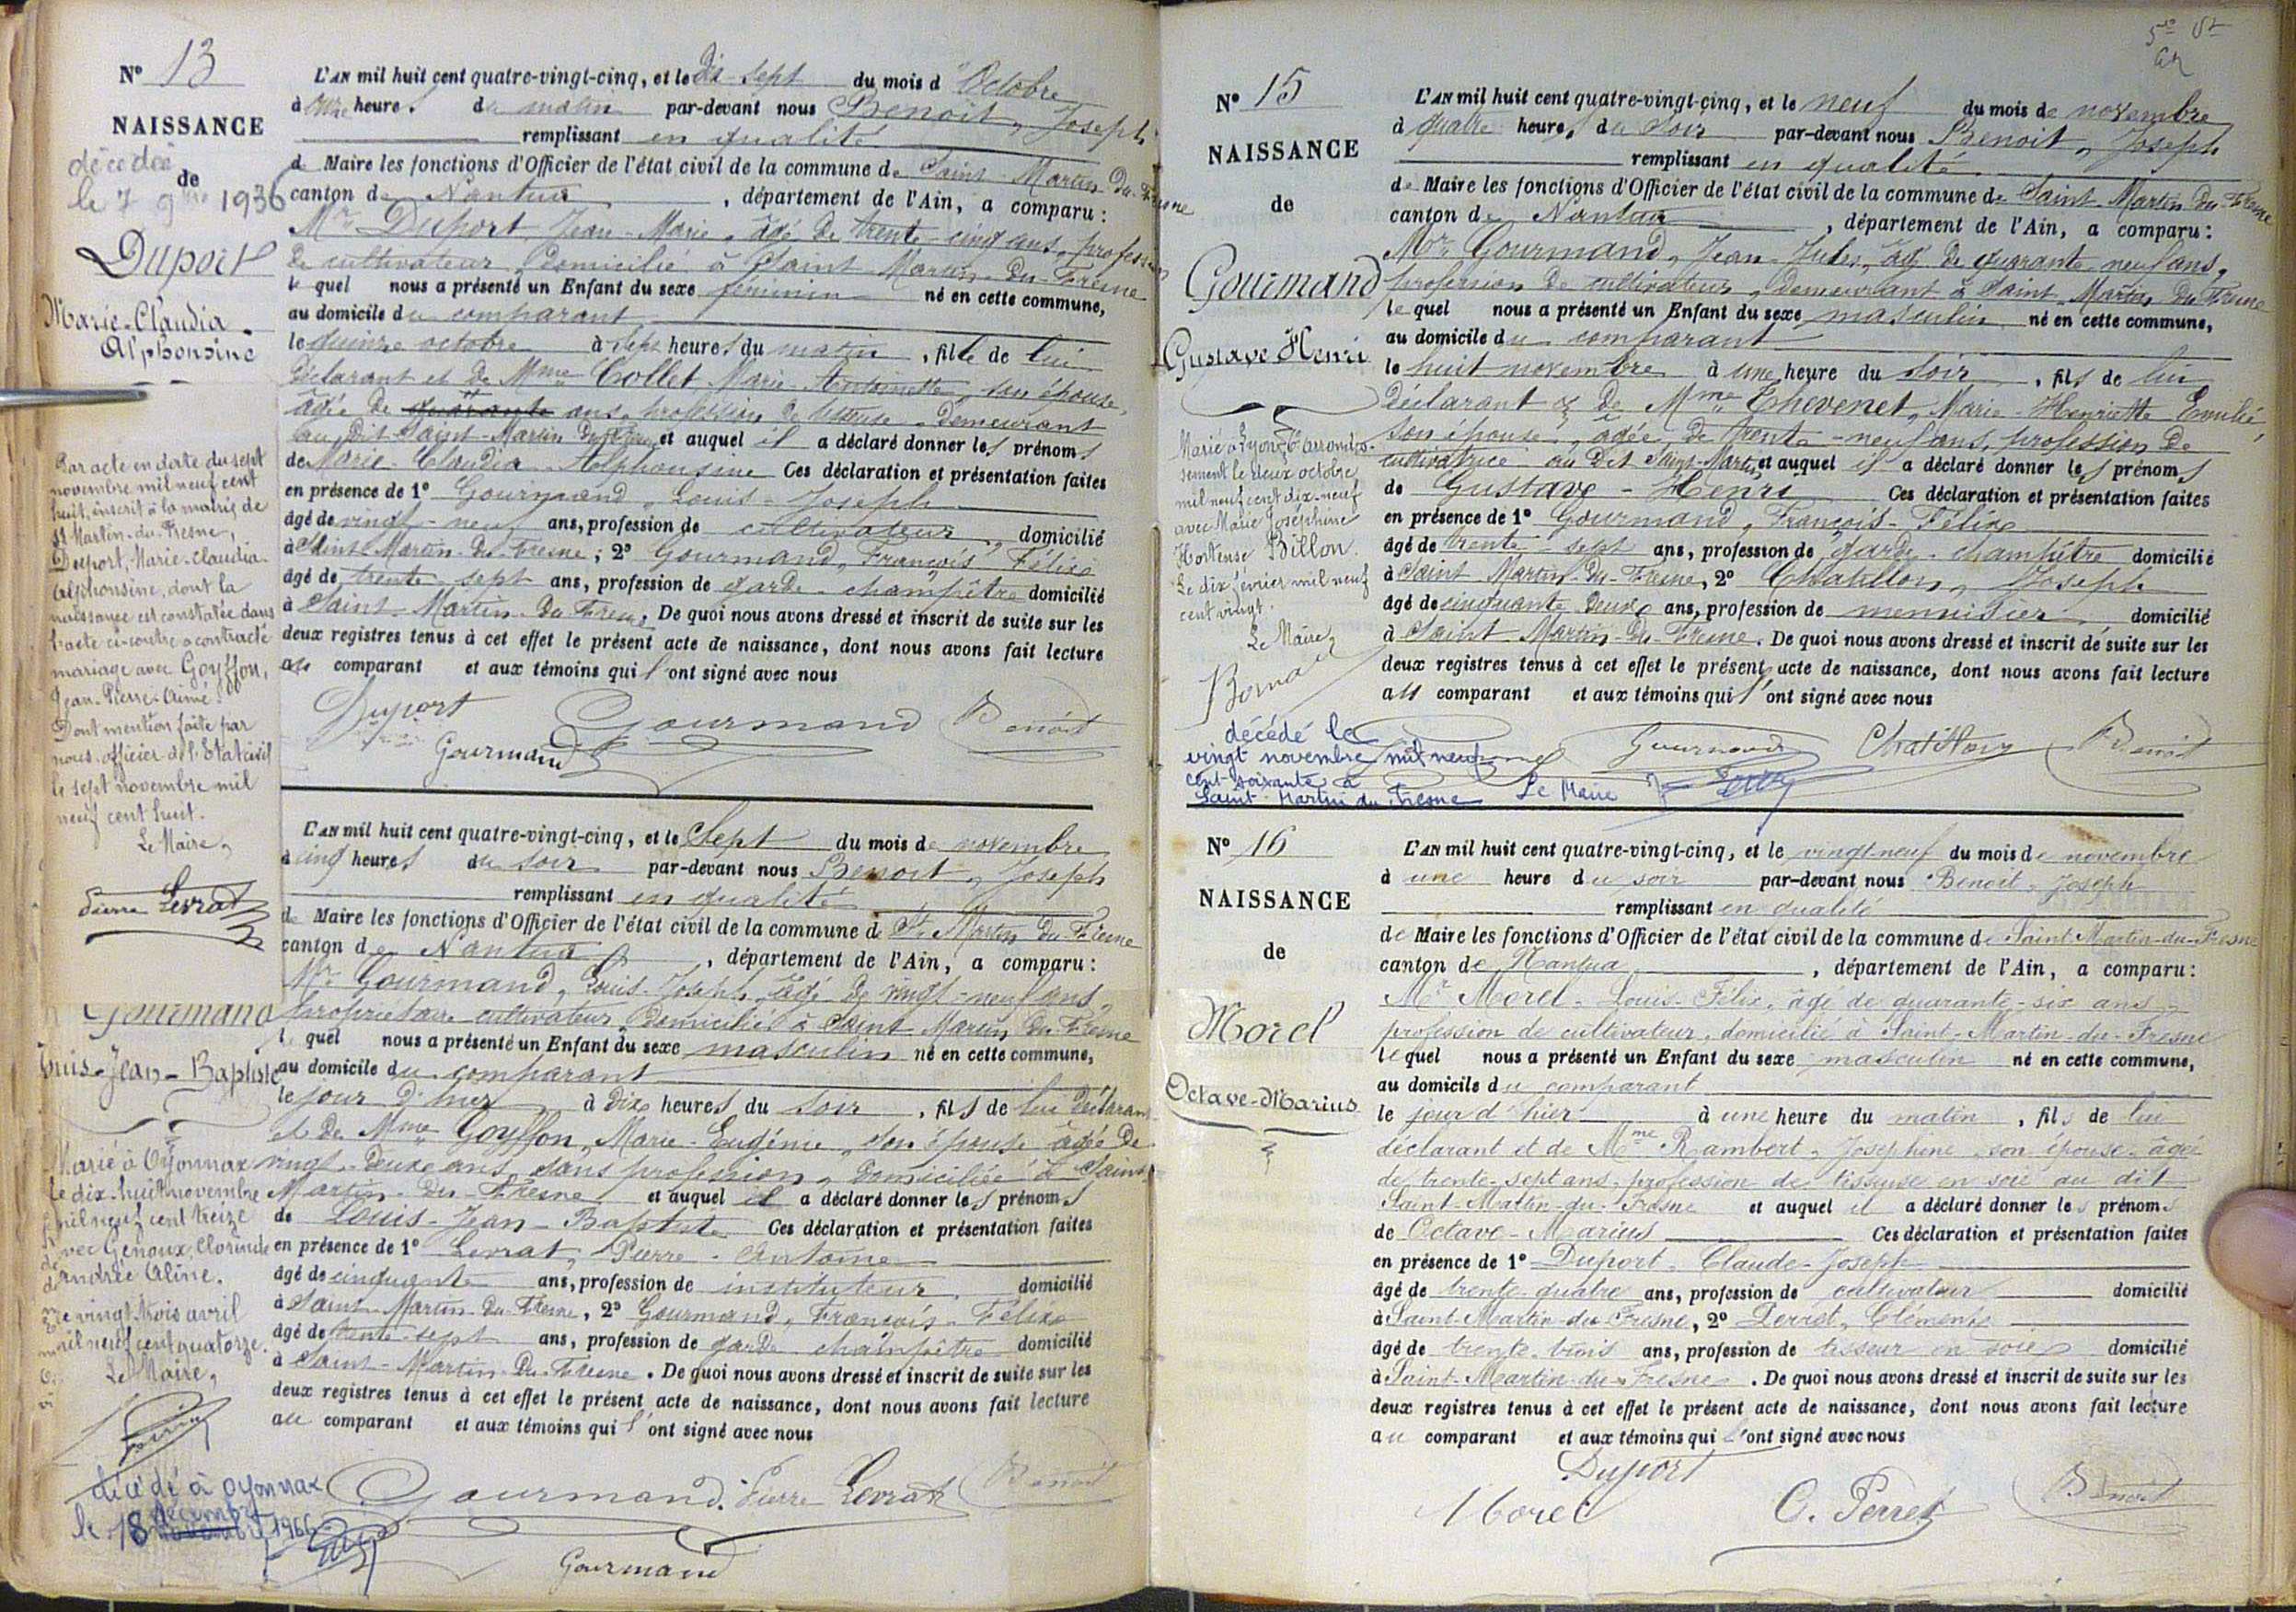 N° 13
NAISSANCE
décédée
de
le 7 9bre 1936
Duport
Marie-Claudia
Alphonsine
Par acte en date du sept
novembre mil neuf cent
huit, inscrit à la mairie de
St Martin-du-Fresne,
Duport, Marie-Claudia-
Alphonsine, dont la
naissance est constatée dans
l'acte ci-contre a contracté
mariage avec Goyffon,
Jean-Pierre-Aimé.
Dont mention faite par
nous officier de l'Etat civil
le sept novembre mil
neuf cent huit.
Le Maire,
Pierre Levrat
L'AN mil huit cent quatre-vingt-cinq, et le dix-sept du mois d'Octobre
à onze heures du matin par-devant nous Benoit, Joseph
remplissant en qualité
de Maire les fonctions d'Officier de l'état civil de la commune de Saint-Martin-du-Fresne
canton de Nantua, département de l'Ain, a comparu :
Mr Duport, Jean-Marie, âgé de trente-cinq ans, profession
de cultivateur, domicilié à Saint Martin-du-Fresne
lequel nous a présenté un Enfant du sexe féminin né en cette commune,
au domicile du comparant
le quinze octobre à sept heures du matin, fille de lui
déclarant et de Mme Collet Marie-Antoinette, son épouse,
âgée de quarante ans, profession de tisseuse, demeurant
au dit Saint-Martin-du-Fresne, et auquel il a déclaré donner les prénoms
de Marie-Claudia-Alphonsine Ces déclaration et présentation faites
en présence de 1° Gourmand, Louis-Joseph
âgé de vingt-neuf ans, profession de cultivateur, domicilié
à Saint-Martin-du-Fresne ; 2° Gourmand, François-Félix
âgé de trente-sept ans, profession de garde-champêtre domicilié
à Saint-Martin-du-Fresne. De quoi nous avons dressé et inscrit de suite sur les
deux registres tenus à cet effet le présent acte de naissance, dont nous avons fait lecture
au comparant et aux témoins qui l'ont signé avec nous
Duport Gourmand Benoit
Gourmand
Gourmand
Louis-Jean-Baptiste
Marié à Oyonnax
le dix-huit novembre
mil neuf cent treize
avec Genoux, Clorinde
Andrée Aline.
Le vingt-trois avril
mil neuf cent quatorze.
Le Maire,
décédé à Oyonnax
décembre
le 18 novembre 1966
L'AN mil huit cent quatre-vingt-cinq, et le sept du mois de novembre
à cinq heures du soir par-devant nous Benoit, Joseph
remplissant en qualité
de Maire les fonctions d'Officier de l'état civil de la commune de St Martin du Fresne
canton de Nantua, département de l'Ain, a comparu :
Mr Gourmand, Louis-Joseph, âgé de vingt-neuf ans,
propriétaire cultivateur, domicilié à Saint Martin du Fresne
lequel nous a présenté un Enfant du sexe masculin né en cette commune,
au domicile du comparant
le jour d'hier à dix heures du soir, fils de lui déclarant
et de Mme Goyffon, Marie-Eugénie, son épouse âgée de
vingt-deux ans, sans profession, domiciliée à Saint
Martin-du-Fresne et auquel il a déclaré donner les prénoms
de Louis-Jean-Baptiste Ces déclaration et présentation faites
en présence de 1° Levrat, Pierre-Antoine
âgé de cinquante ans, profession de instituteur, domicilié
à Saint-Martin-du-Fresne, 2° Gourmand, François-Félix
âgé de trente-sept ans, profession de garde champêtre domicilié
à Saint-Martin-du-Fresne. De quoi nous avons dressé et inscrit de suite sur les
deux registres tenus à cet effet le présent acte de naissance, dont nous avons fait lecture
au comparant et aux témoins qui l'ont signé avec nous
Gourmand. Pierre Levrat Benoit
Gourmand
N° 15
NAISSANCE
de
Gourmand
Gustave Henri
Marié à Lyon 6e arrondis-
sement le deux octobre
mil neuf cent dix-neuf
avec Marie Joséphine
Hortense Billon.
Le dix février mil neuf
cent vingt.
Le Maire,
décédé le
vingt novembre mil neuf
cent soixante à
Saint-Martin du Fresne Le Maire
L'AN mil huit cent quatre-vingt-cinq, et le neuf du mois de novembre
à quatre heures du soir par-devant nous Benoit, Joseph
remplissant en qualité
de Maire les fonctions d'Officier de l'état civil de la commune de Saint Martin du Fresne
canton de Nantua, département de l'Ain, a comparu :
Mr Gourmand, Jean-Jules, âgé de quarante-neuf ans,
profession de cultivateur, demeurant à Saint-Martin du Fresne
lequel nous a présenté un Enfant du sexe masculin né en cette commune,
au domicile du comparant
le huit novembre à une heure du soir, fils de lui
déclarant & de Mme Thevenet, Marie-Henriette
son épouse, âgée de trente-neuf ans, profession de
cultivatrice au dit Saint-Martin, et auquel il a déclaré donner les prénoms
de Gustave-Henri Ces déclaration et présentation faites
en présence de 1° Gourmand, François-Félix
âgé de trente-sept ans, profession de garde-champêtre domicilié
à Saint-Martin-du-Fresne, 2° Chatillon, Joseph
âgé de cinquante deux ans, profession de menuisier, domicilié
à Saint Martin-du-Fresne. De quoi nous avons dressé et inscrit de suite sur les
deux registres tenus à cet effet le présent acte de naissance, dont nous avons fait lecture
au comparant et aux témoins qui l'ont signé avec nous
Gourmand Chatillon Benoit
N° 16
NAISSANCE
de
Morel
Octave-Marius
L'AN mil huit cent quatre-vingt-cinq, et le vingt-neuf du mois de novembre
à une heure du soir par-devant nous Benoit, Joseph
remplissant en qualité
de Maire les fonctions d'Officier de l'état civil de la commune de Saint-Martin-du-Fresne
canton de Nantua, département de l'Ain, a comparu :
Mr Morel, Louis-Félix, âgé de quarante-six ans,
profession de cultivateur, domicilié à Saint-Martin-du-Fresne
lequel nous a présenté un Enfant du sexe masculin né en cette commune,
au domicile du comparant
le jour d'hier à une heure du matin, fils de lui
déclarant et de Mme Rambert, Joséphine, son épouse, âgée
de trente-sept ans, profession de tisseuse en soie au dit
Saint-Martin-du-Fresne et auquel il a déclaré donner les prénoms
de Octave-Marius Ces déclaration et présentation faites
en présence de 1° Duport, Claude-Joseph
âgé de trente-quatre ans, profession de cultivateur domicilié
à Saint-Martin-du-Fresne, 2° Perret, Clément
âgé de trente-trois ans, profession de tisseur en soie domicilié
à Saint-Martin-du-Fresne. De quoi nous avons dressé et inscrit de suite sur les
deux registres tenus à cet effet le présent acte de naissance, dont nous avons fait lecture
au comparant et aux témoins qui l'ont signé avec nous
Duport
Morel C. Perret Benoit